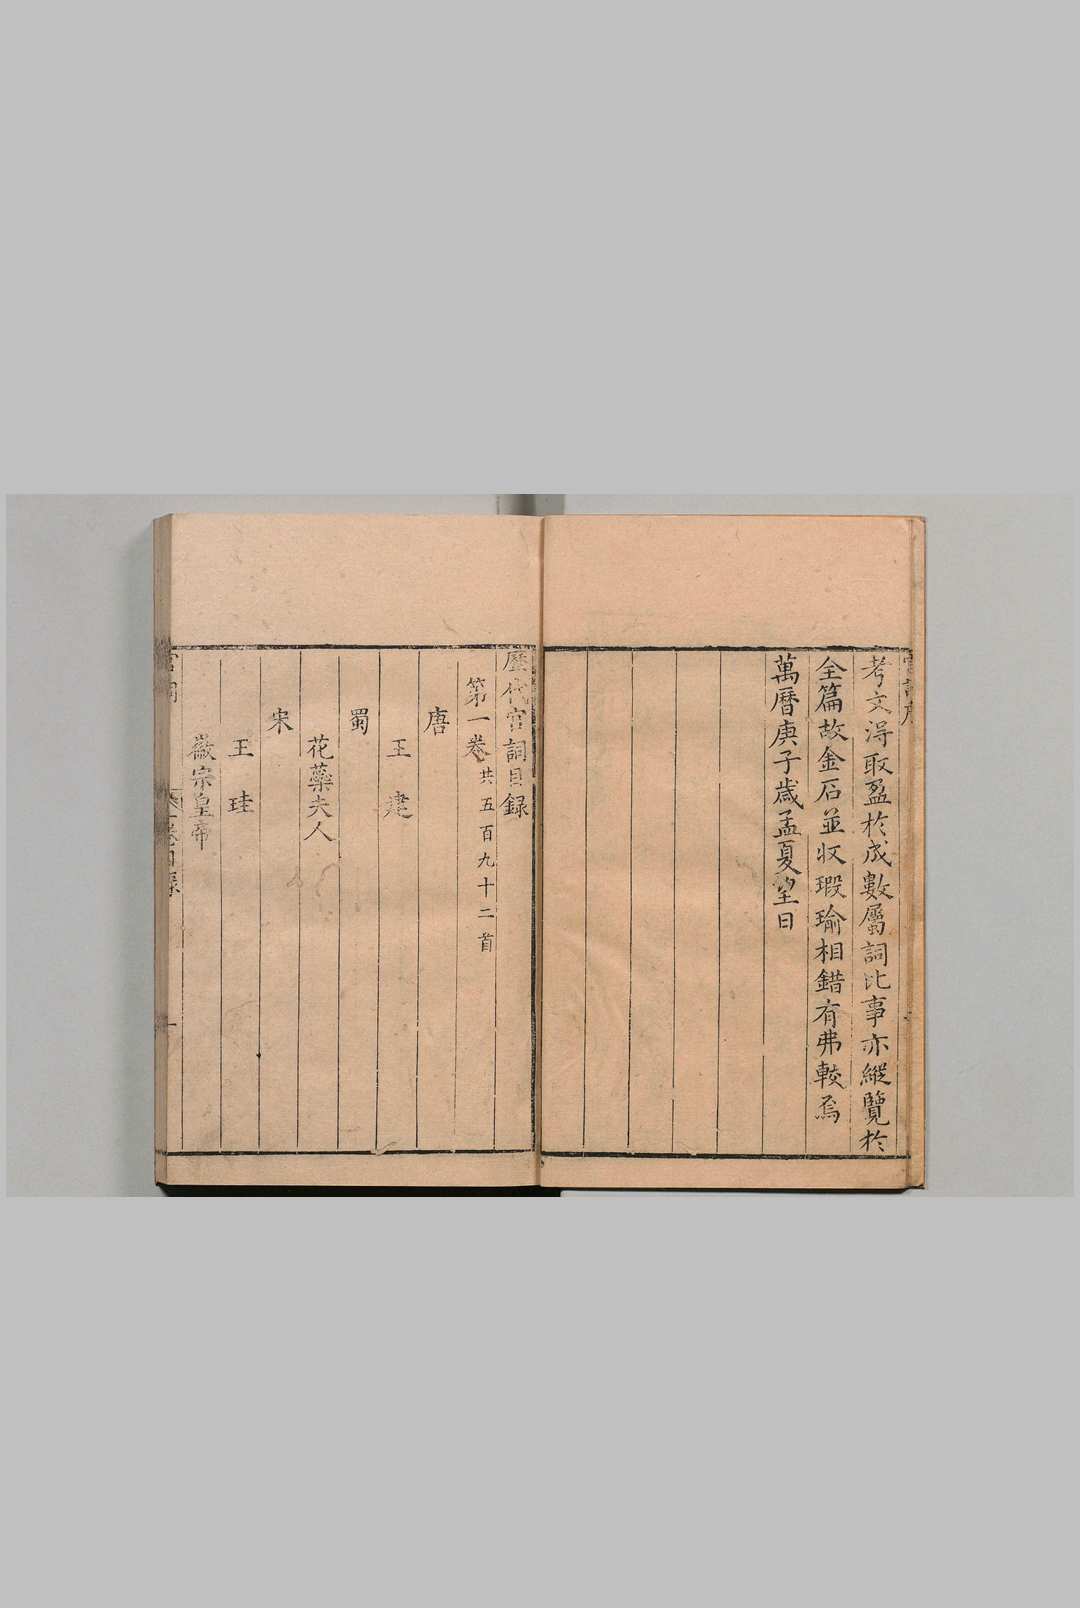 考文淂取盈扵成數屬詞比事亦縱覽扵
全篇故金石並收瑕瑜相錯有弗較焉
萬曆庚子歲孟夏望日
歷代宮詞目録
第一卷 共五百九十二首
唐
王建
蜀
花蘂夫人
宋
王珪
徽宗皇帝